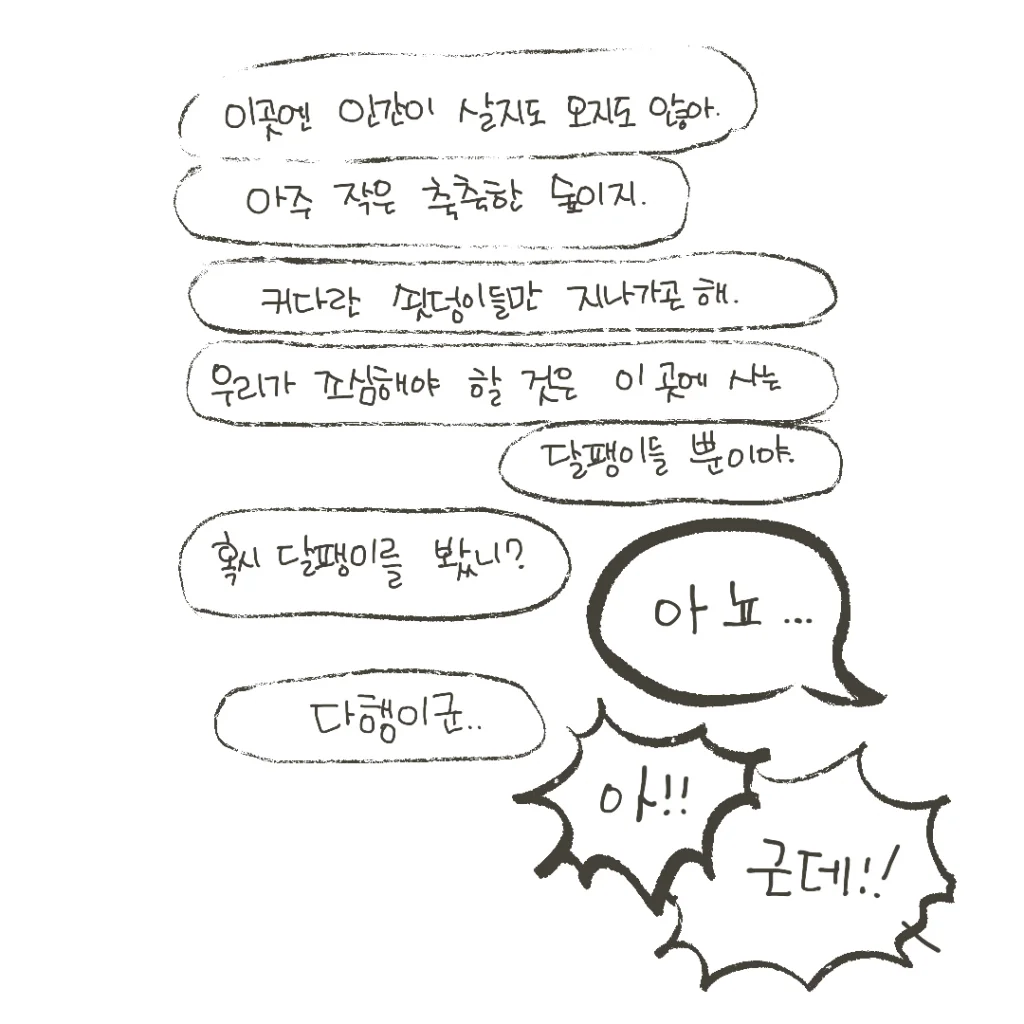 이곳엔 인간이 살지도 오지도 않아.
아주 작은 축축한 숲이지.
커다란 핏덩이들만 지나가곤 해.
우리가 조심해야 할 것은 이 곳에 사는
달팽이들 뿐이야.
혹시 달팽이를 봤니?
아뇨...
다행이군..
아!!
근데!!